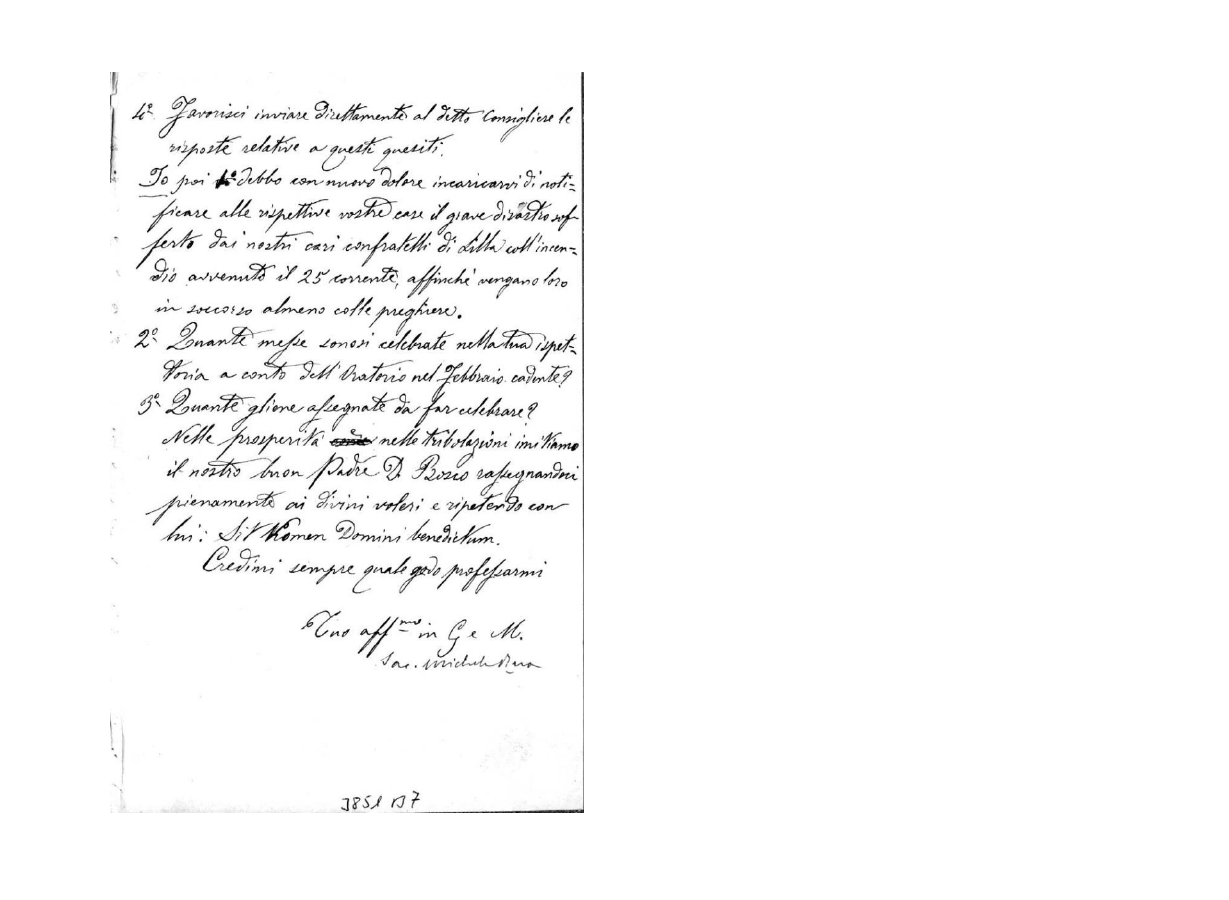 4º Favorisci inviare direttamente al detto Consigliere le
risposte relative a questi quesiti.
Io poi 1º debbo con nuovo dolore incaricarvi di noti=
ficare alle rispettive vostre case il grave disastro sof
ferto dai nostri cari confratelli di Lilla coll'incen=
dio avvenuto il 25 corrente, affinchè vengano loro
in soccorso almeno colle preghiere.
2º Quante messe sonosi celebrate nella tua ispet=
toria a conto dell'Oratorio nel Febbraio cadente?
3º Quante gliene assegnate da far celebrare?
Nelle prosperità nelle tribolazioni imitiamo
il nostro buon Padre D. Bosco rassegnandoci
pienamente ai divini voleri e ripetendo con
lui: Sit Nomen Domini benedictum.
Credimi sempre quale godo professarmi
Tuo aff.mo in G e M.
Sac. Michele Rua
3851 B7